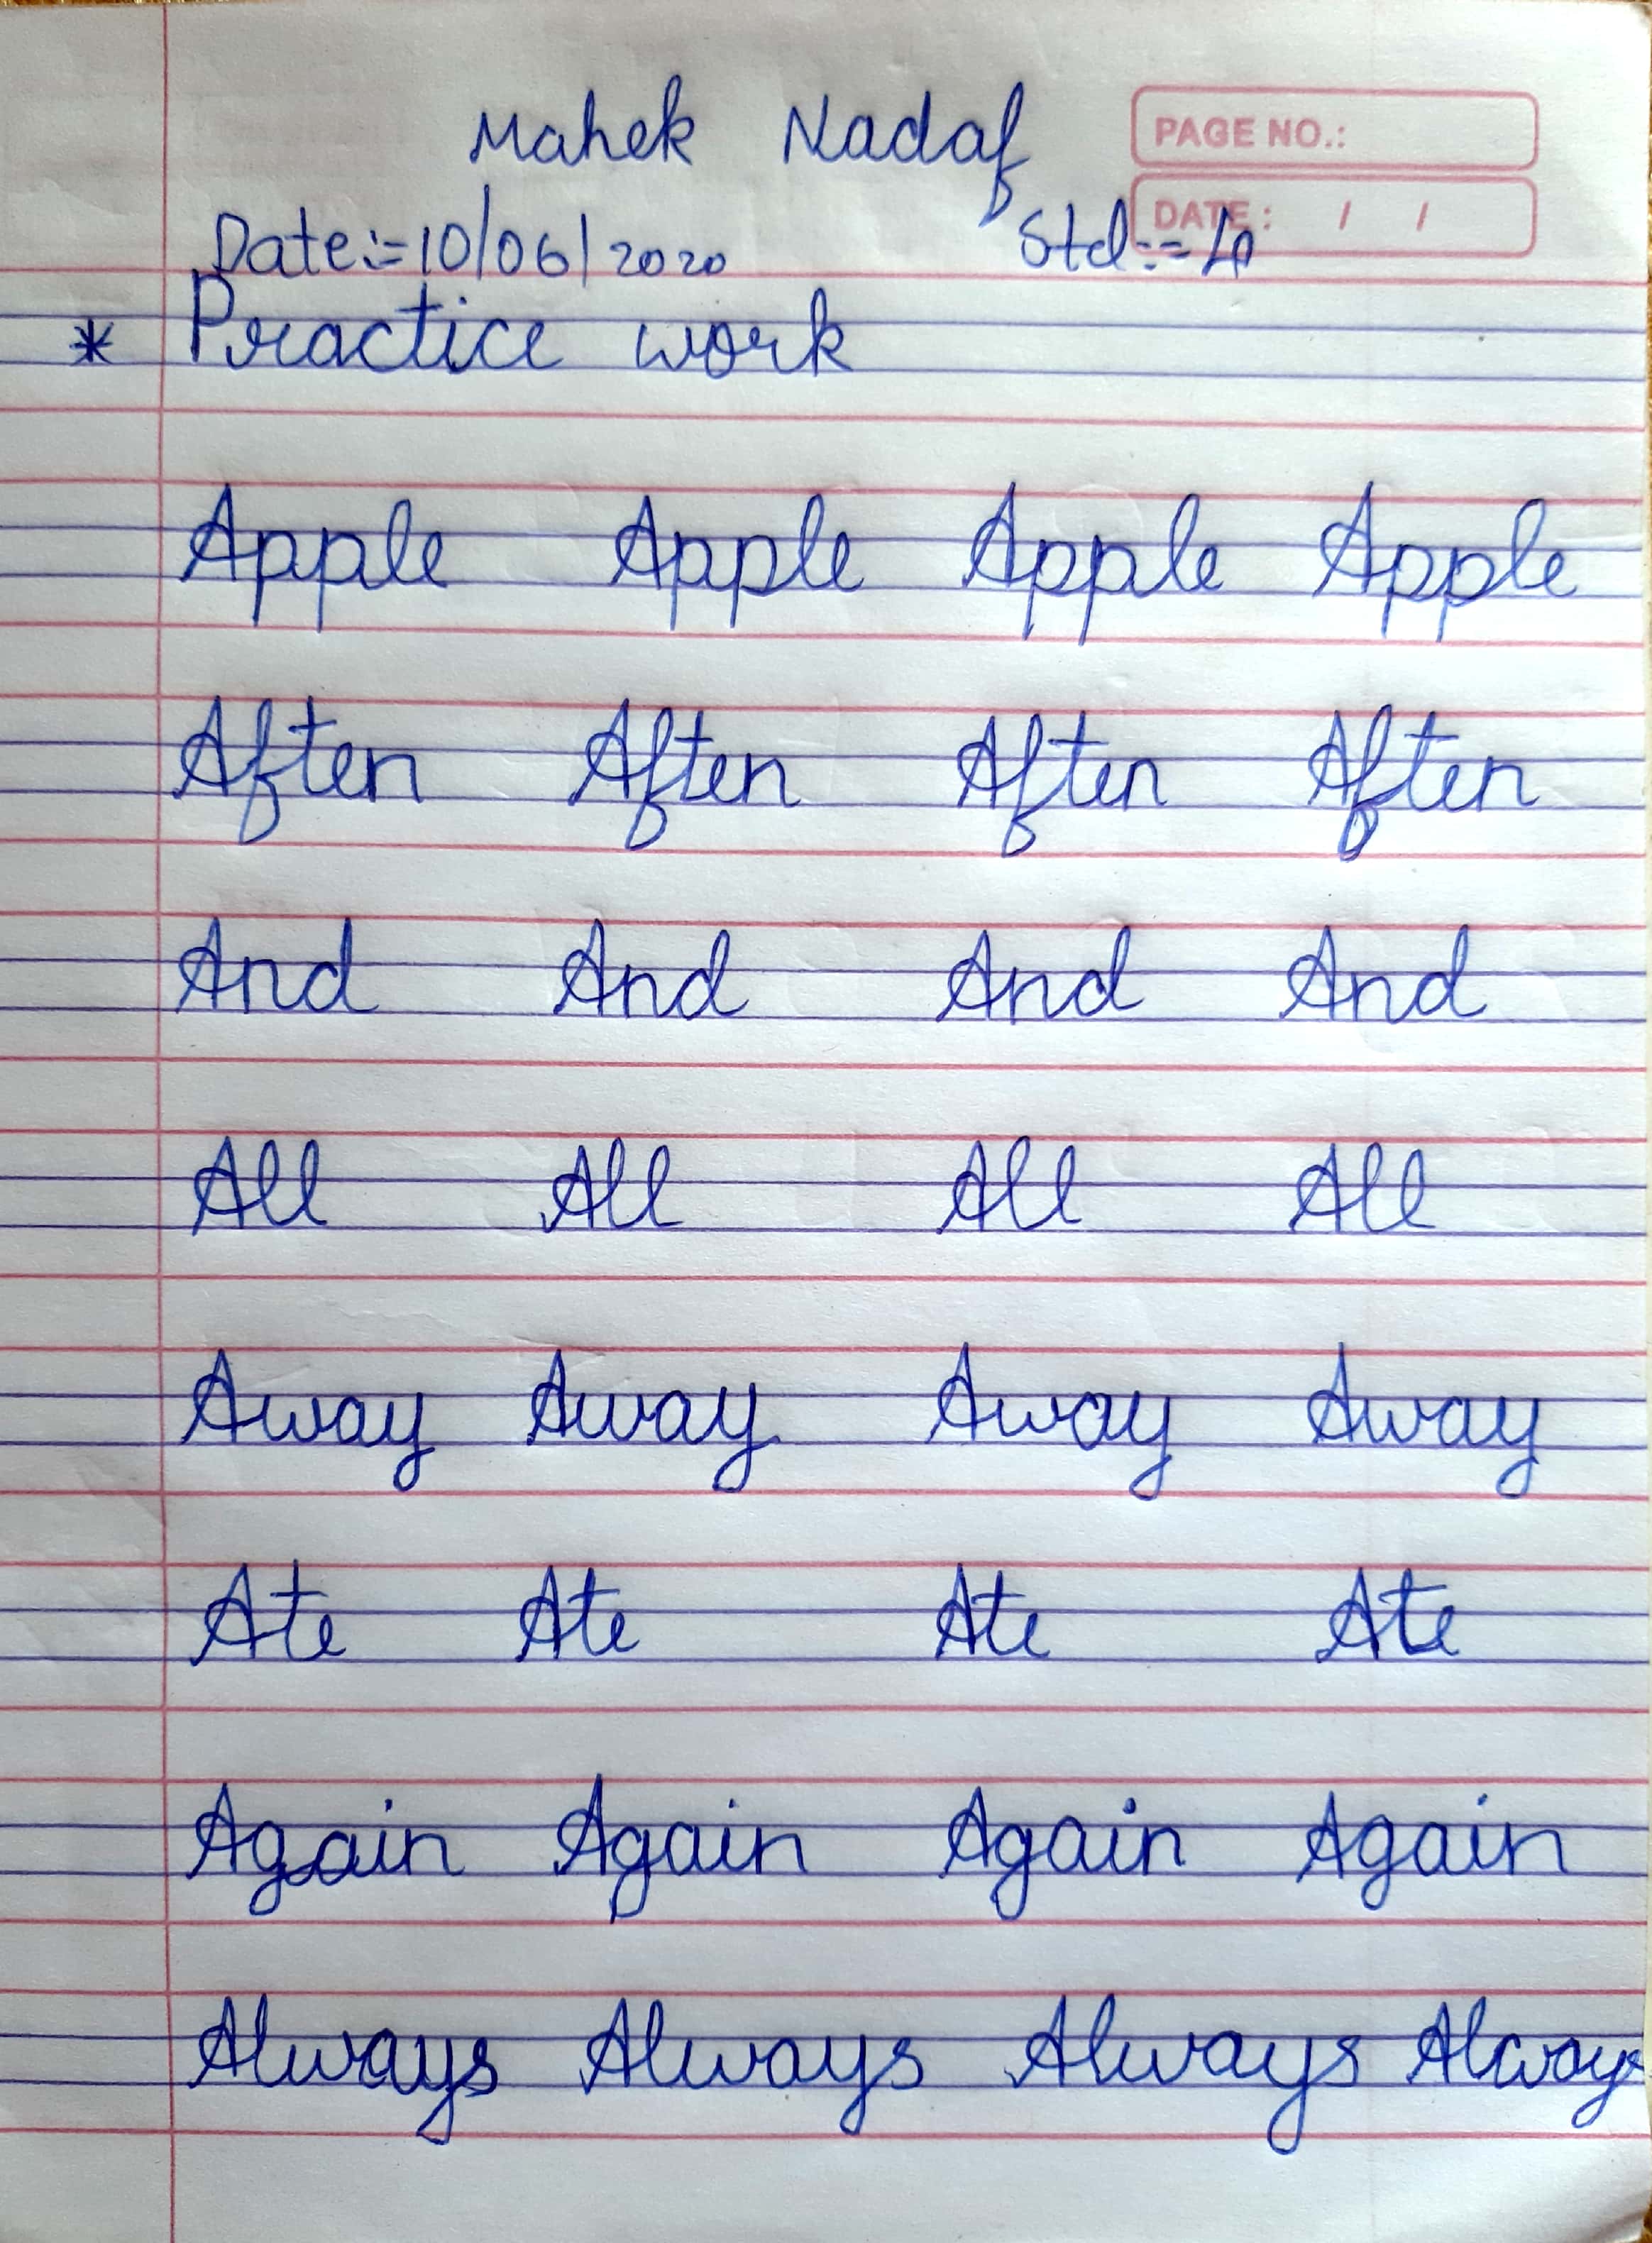 Mahek Nadaf
PAGE NO.:
DATE: / /
Date:-10/06/2020 Std:-4
* Practice work
Apple Apple Apple Apple
After After After After
And And And And
All All All All
Away Away Away Away
Ate Ate Ate Ate
Again Again Again Again
Always Always Always Always